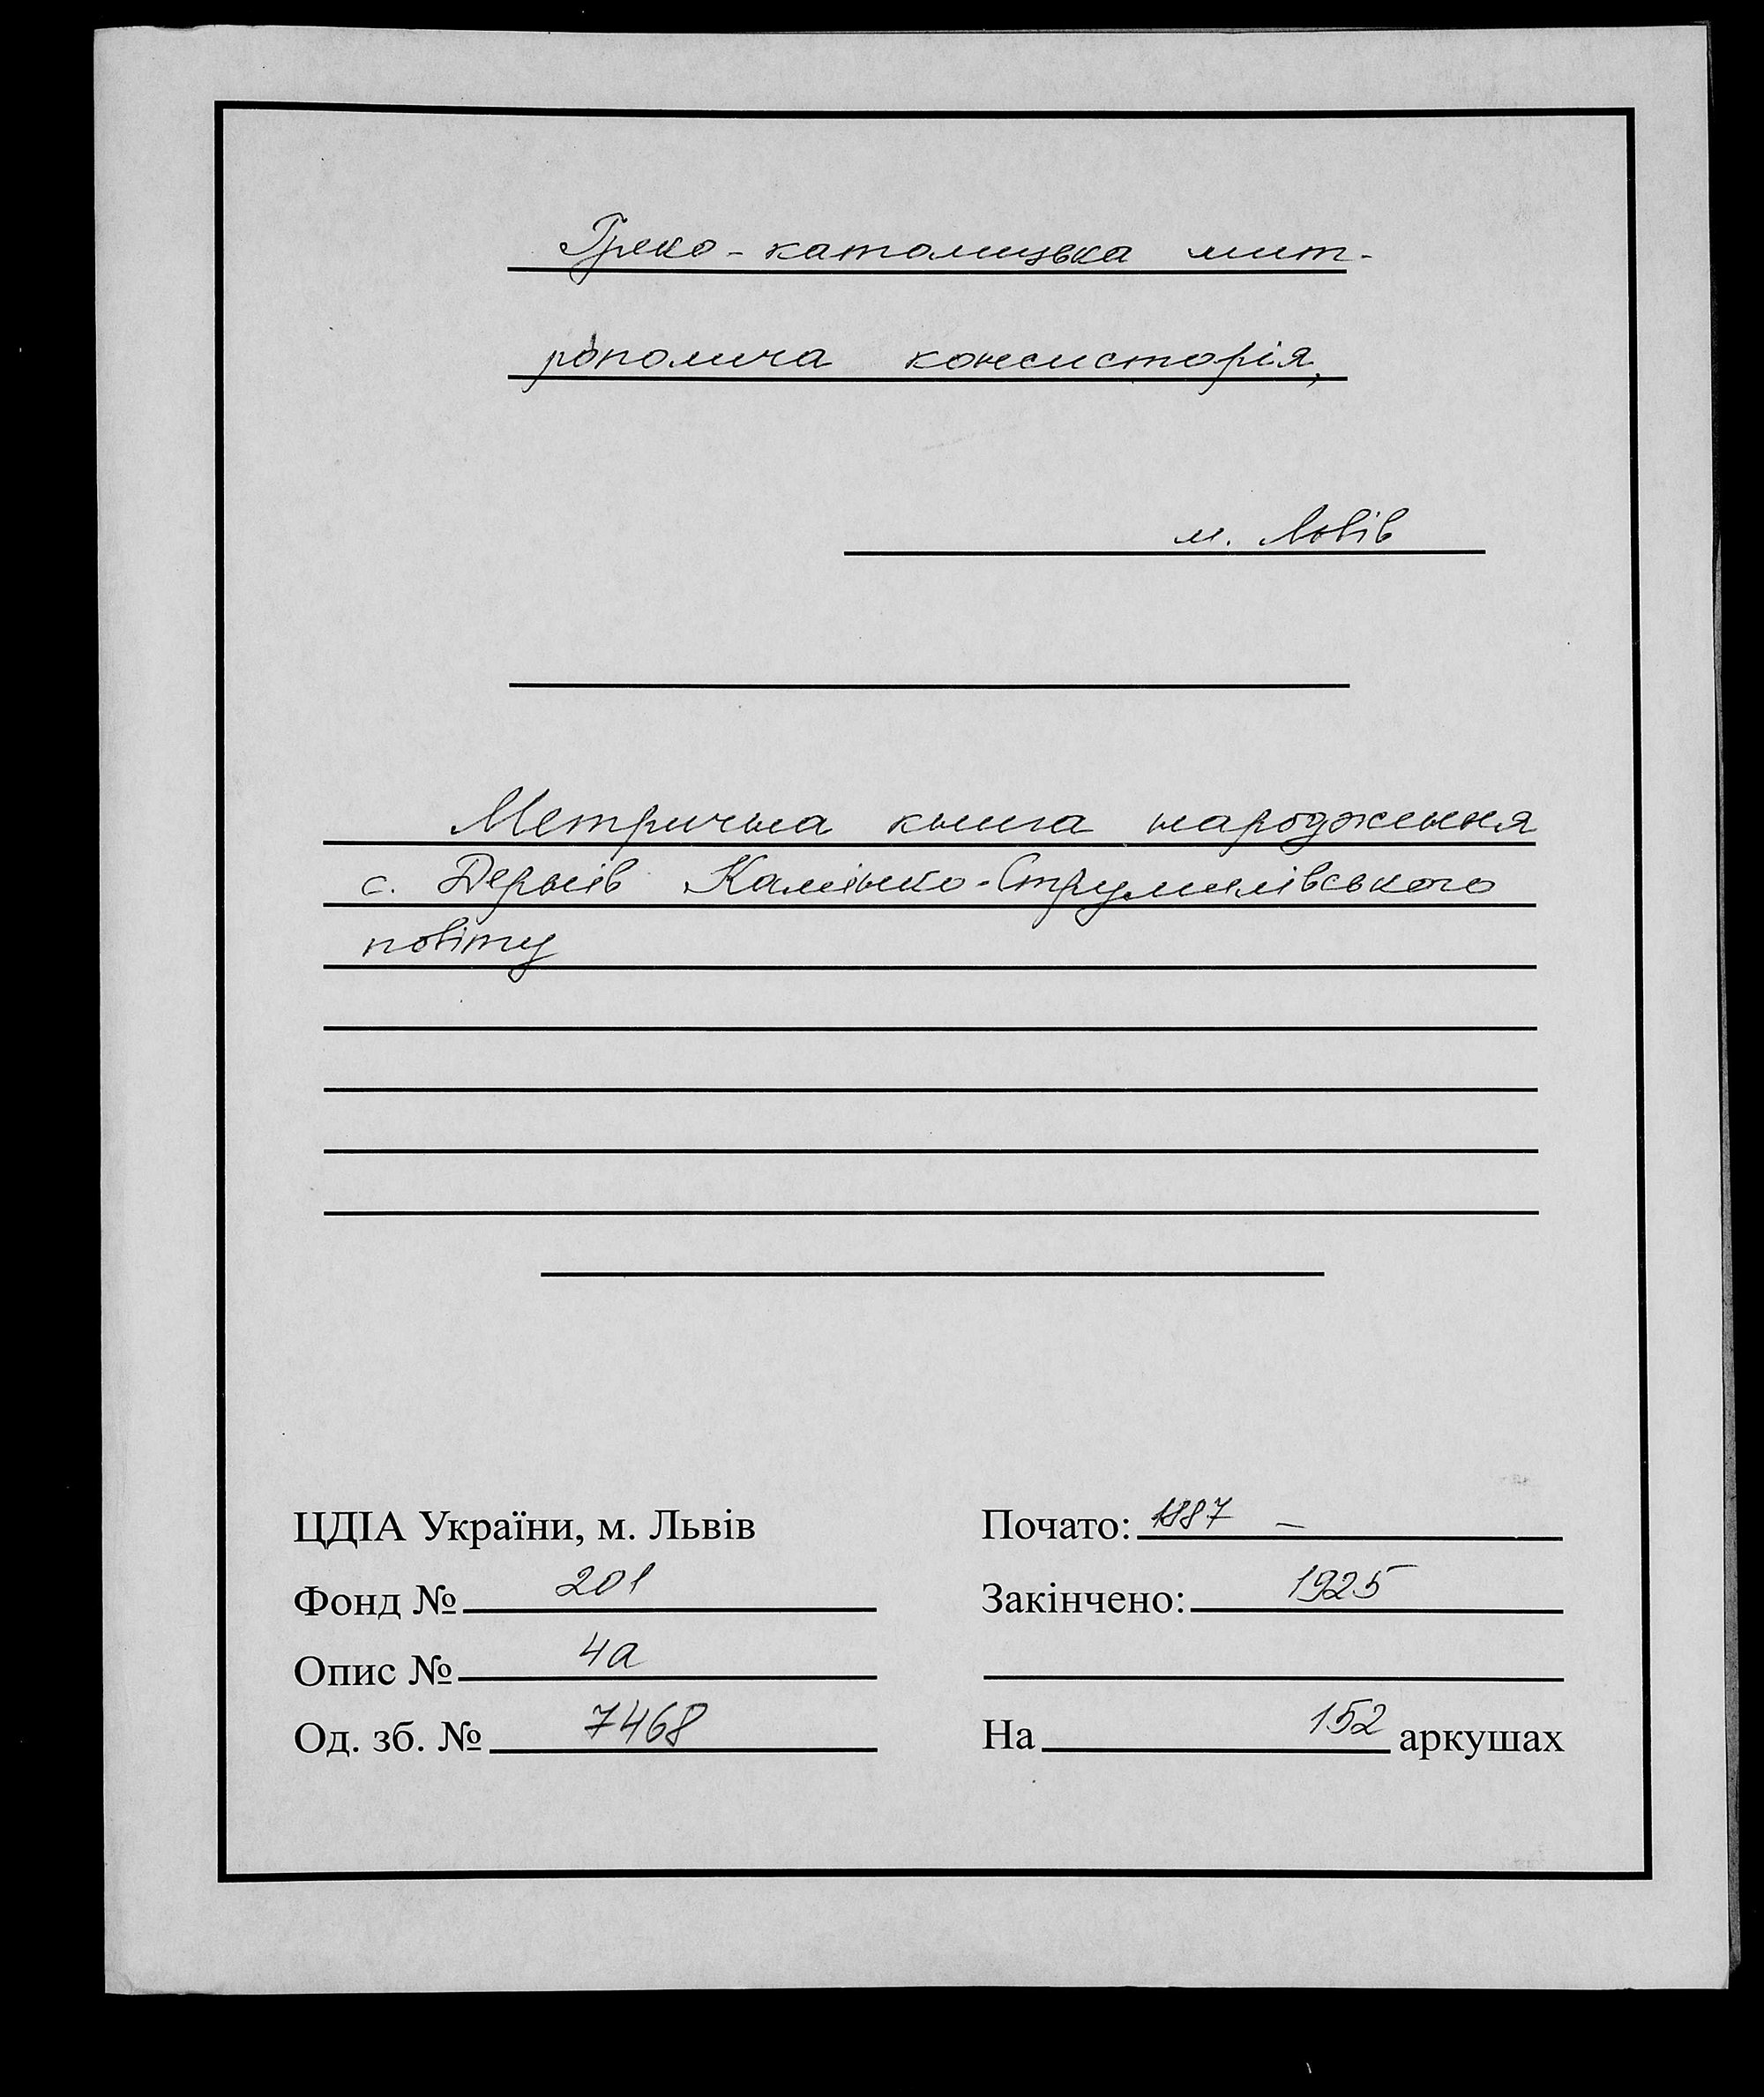 Греко-католицька мит-
рополича консисторія,
м. Львів
Метрична книга народження
с. Дернів Камінко-Струмилівського
повіту
ЦДІА України, м. Львів
Фонд № 201
Опис № 4а
Од. зб. № 7468
Почато: 1887 –
Закінчено: 1925
На 152 аркушах